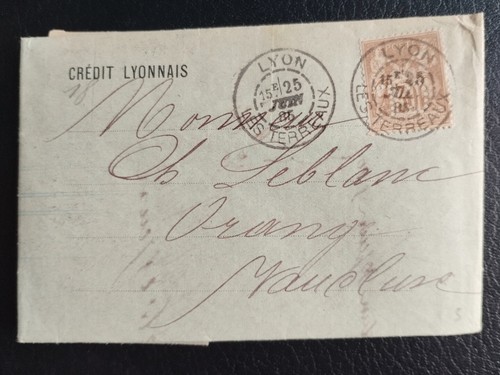 CRÉDIT LYONNAIS
LYON
15E 25
JUIN
85
LES TERREAUX
LYON
15E 25
LES TERREAUX
18
Monsieur
Ch Leblanc
Orange
Vaucluse